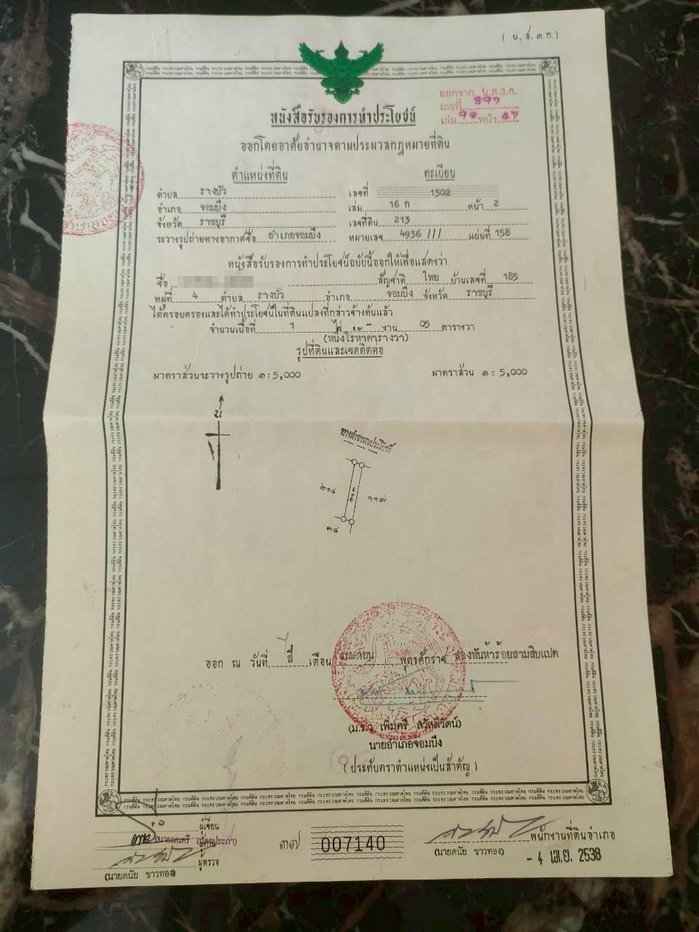 (น.ส.๓ ก.)
แยกจาก น.ส.๓.ก.
เลขที่ 897
เล่ม 9ก หน้า 47
หนังสือรับรองการทำประโยชน์
ออกโดยอาศัยอำนาจตามประมวลกฎหมายที่ดิน
ตำแหน่งที่ดิน ทะเบียน
ตำบล รางบัว เลขที่ 1502
อำเภอ จอมบึง เล่ม 16 ก หน้า 2
จังหวัด ราชบุรี เลขที่ดิน 213
ระวางรูปถ่ายทางอากาศชื่อ อำเภอจอมบึง หมายเลข 4936 III แผ่นที่ 158
หนังสือรับรองการทำประโยชน์ฉบับนี้ออกให้เพื่อแสดงว่า
ชื่อ สัญชาติ ไทย บ้านเลขที่ 185
หมู่ที่ 4 ตำบล รางบัว อำเภอ จอมบึง จังหวัด ราชบุรี
ได้ครอบครองและได้ทำประโยชน์ในที่ดินแปลงที่กล่าวข้างต้นแล้ว
จำนวนเนื้อที่ 1 ไร่ - งาน 05 ตารางวา
(หนึ่งไร่ห้าตารางวา)
รูปที่ดินและเขตติดต่อ
มาตราส่วนระวางรูปถ่าย ๑:5,000 มาตราส่วน ๑:5,000
น
ทางสาธารณประโยชน์
๒๑๔ ๒๑๓ ๑๑๗
๓๔
ออก ณ วันที่ สี่ เดือน เมษายน พุทธศักราช สองพันห้าร้อยสามสิบแปด
(ม.ร.ว. เพิ่มศรี สวัสดิวัตน์)
นายอำเภอจอมบึง
(ประทับตราตำแหน่งเป็นสำคัญ)
ผู้เขียน
ผู้ตรวจ
(นายดนัย ขาวทอง)
๓๗ 007140
พนักงานที่ดินอำเภอ
(นายดนัย ขาวทอง) - 4 เม.ย. 2538